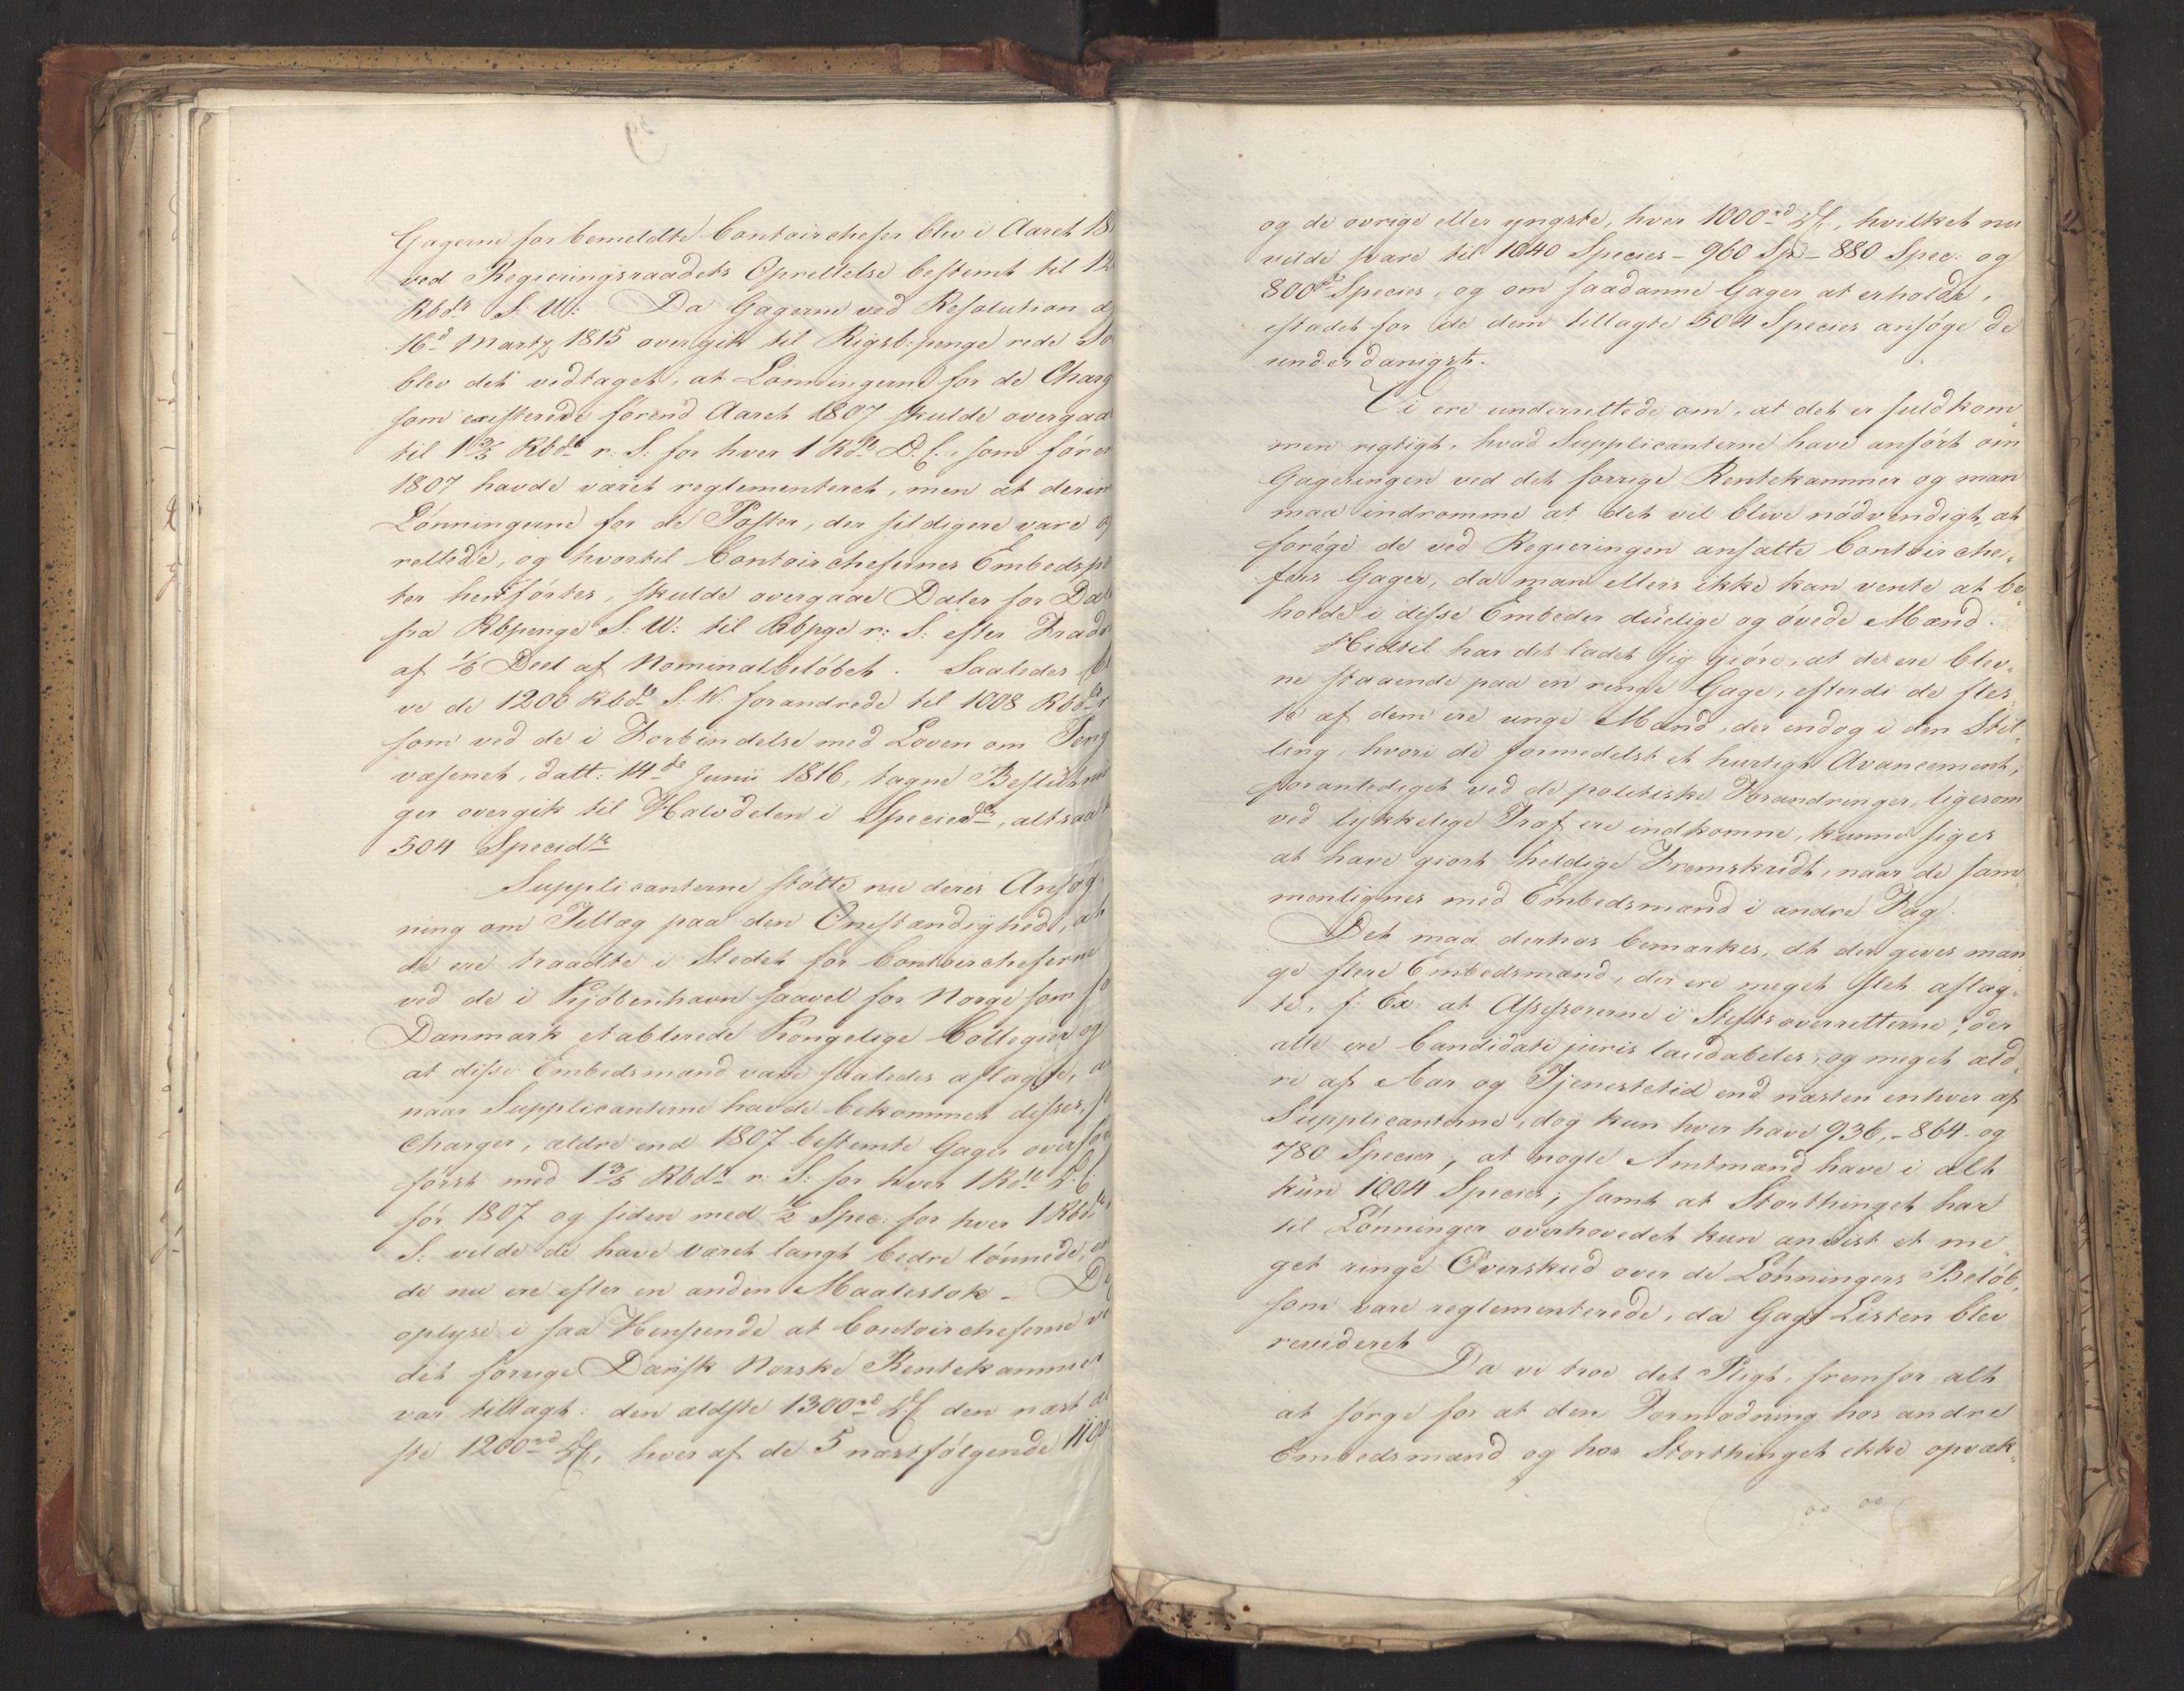 Gagerne for bemeldte Contoirchefer blev i Aaret 18
ved Regjeringsraadets Oprettelse bestemt til 12
Rbdr S: W: Da Gagerne ved Resolution
16de Martz 1815 overgik til Rigsb: penge rede So
blev det vedtaget, at Lønningerne for de Charg
som existerede førend Aaret 1807 skulde overgaae
til 1 3/5 Rbdlr r. S: for hver 1 Rdlr D. C., som førend
1807 havde været reglementeret, men at derim
Lønningerne for de Poster, der sildigere vare op
rettede, og hvortil Contoirchefernes Embedspo
ster henførtes, skulde overgaae Daler for Dal
fra Rbpenge S: W: til Rbpge r: S: efter Fradr
af 1/6 Deel af Nominalbeløbet. Saaledes bl
ve de 1200 Rbdlr S. W. forandrede til 1008 Rbdlr
som ved de i Forbindelse med Loven om Peng
væsenet, datt: 14de Junii 1816, tagne Beslutnin
ger overgik til Halvdelen i Speciedlr, altsaa t
504 Specidlr
Supplicanterne støtte nu deres Ansøg
ning om Tillæg paa den Omstændighed, at
de ere traadte i Stedet for Contoircheferne
ved de i Kjøbenhavn saavel for Norge som fo
Danmark etablerede Kongelige Collegier og
at disse Embedsmænd vare saaledes aflagte, at
naar Supplicanterne havde bekommet disses, f
Charger, ældre end 1807 bestemte Gager overfø
ført med 1 3/5 Rbdr r. S: for hver 1 Rdlr D. C
før 1807 og siden med 1/2 Spec: for hver 1 Rbdlr
S: vilde de have været langt bedre lønnede, en
de nu ere efter en anden Maalestok – De
oplyse i saa Henseende at Contoircheferne ve
det forrige Dansk Norske Rentekammer
var tillagt: den ældste 1300rd D.C. den næst æl
ste 1200rd D.C., hver af de 5 næstfølgende 1100
og de øvrige eller yngste, hver 1000rd D.C., hvilket nu
vilde svare til 1040 Species – 960 Sp. – 880 Spec: og
800 Species, og om saadanne Gager at erholde,
istædet for de dem tillagte 504 Species ansøge de
underdanigst.
Vi ere underrettede om, at det er fuldkom
men rigtigt, hvad Supplicanterne have anført om
Gageringen ved det forrige Rentekammer og man
maa indrømme at det vil blive nødvendigt, at
forøge de ved Regjeringen ansatte Contoirche-
fers Gager, da man ellers ikke kan vente at be
holde i disse Embeder duelige og øvede Mænd.
Hidtil har det ladet sig giøre, at de ere blev-
ne staaende paa en ringe Gage, efterdi de fles-
te af dem ere unge Mænd, der endog i den Stil
ling, hvori de formedelst et hurtigt Avancement,
foranlediget ved de politiske Forandringer, ligesom
ved lykkelige Træf ere indkomne, kunne siges
at have giort heldige Fremskridt, naar de sam
menlignes med Embedsmænd i andre Fag.
Det maa derhos bemærkes, at der gives man
ge flere Embedsmænd, der ere meget slet aflag-
te, f: Ex: at Assessorerne i Stiftsoverretterne, der
alle ere Candidati juris laudabeles, og meget æld
re af Aar og Tjenestetid end næsten enhver af
Supplicanterne, dog kun hver have 936, – 864. og
780 Species, at nogle Amtmænd have i alt
kun 1004 Species, samt at Storthinget har
til Lønninger overhovedet kun anvist et me
get ringe Overskud over de Lønningers Beløb,
som vare reglementerede, da Gage Listen blev
revideret
Da vi troe det Pligt, fremfor alt
at sørge for at den Formodning hos andre
Embedsmænd og hos Storthinget ikke opvæk-